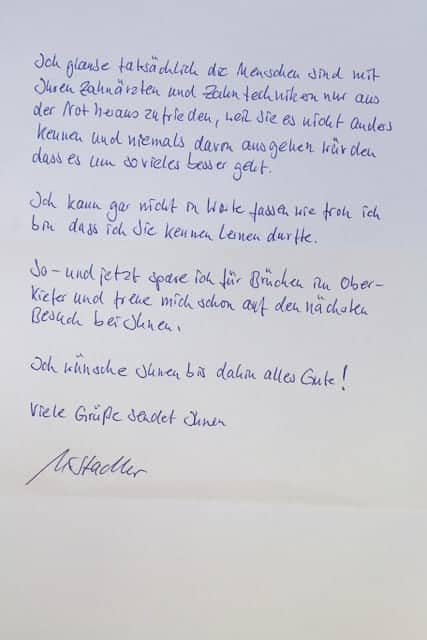 Ich glaube tatsächlich die Menschen sind mit
Ihren Zahnärzten und Zahntechnikern nur aus
der Not heraus zufrieden, weil sie es nicht anders
kennen und niemals davon ausgehen würden
dass es um so vieles besser geht.
Ich kann gar nicht in Worte fassen wie froh ich
bin dass ich Sie kennen lernen durfte.
So - und jetzt spare ich für Brücken im Ober-
kiefer und freue mich schon auf den nächsten
Besuch bei Ihnen.
Ich wünsche Ihnen bis dahin alles Gute!
Viele Grüße sendet Ihnen
Stadler